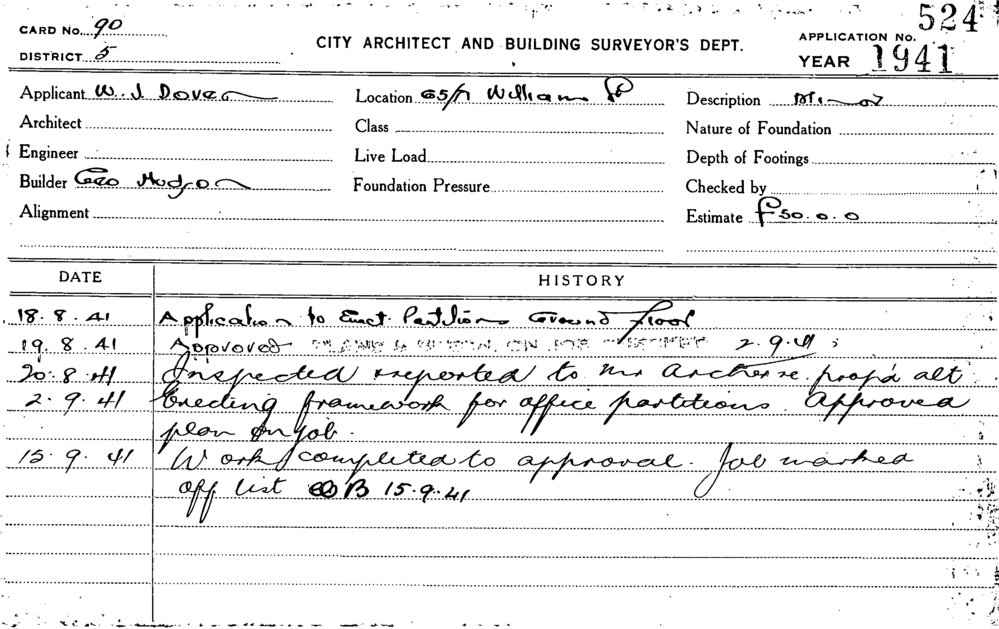 CARD No. 90
DISTRICT 5
CITY ARCHITECT AND BUILDING SURVEYOR'S DEPT.
524
APPLICATION No.
YEAR 1941
Applicant W. J. Dover
Architect
Engineer
Builder Geo Hudson
Alignment
Location 65/71 William St
Class
Live Load
Foundation Pressure
Description Minor
Nature of Foundation
Depth of Footings
Checked by
Estimate £50.0.0
DATE HISTORY
18.8.41 Application to Erect Partitions Ground Floor
19.8.41 Approved PLANS & ON JOB 2.9.41
20.8.41 Inspected & reported to Mr Archer re prop'd alt
2.9.41 Erecting framework for office partitions. Approved
plan on job.
15.9.41 Work completed to approval. Job marked
off list B 15.9.41